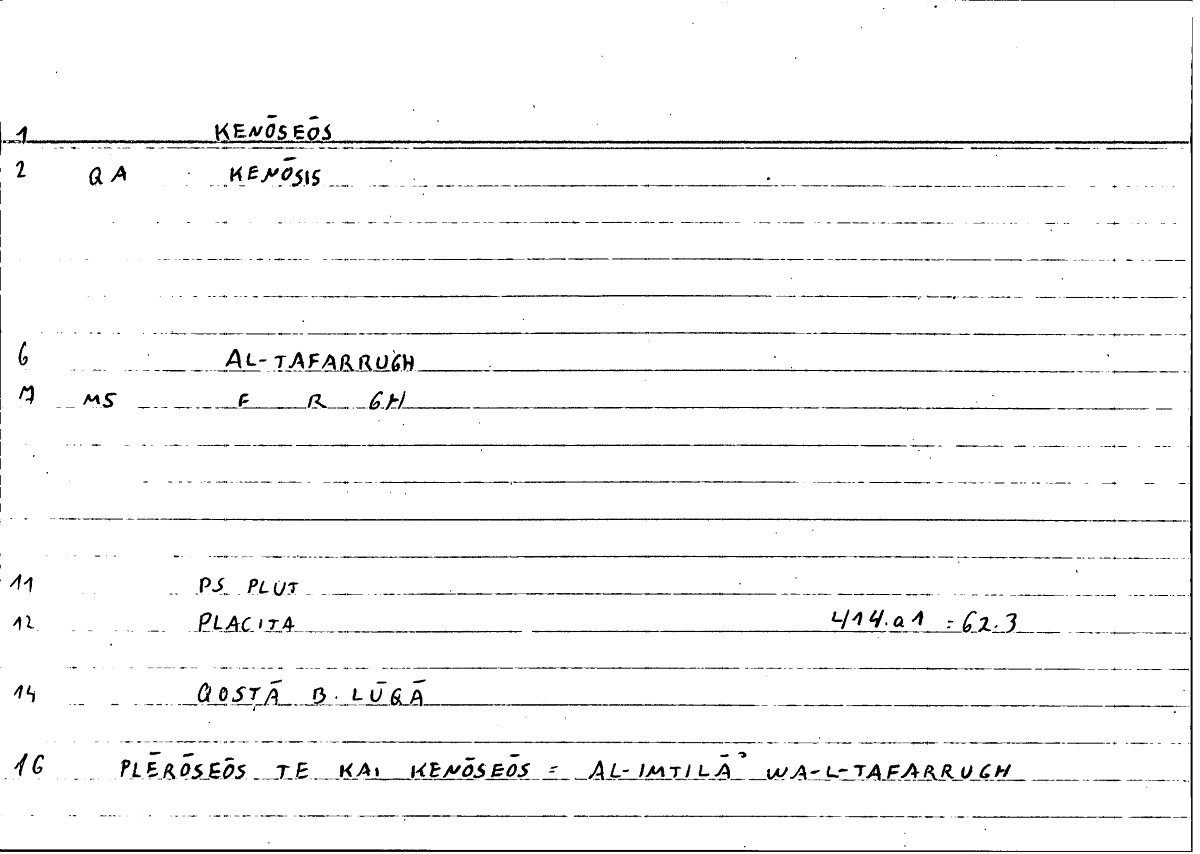 1 KENŌSEŌS
2 QA KENŌSIS
6 AL-TAFARRUGH
7 MS F R GH
11 PS PLUT
12 PLACITA 414.a1 = 62.3
14 QOSṬĀ B. LŪQĀ
16 PLĒRŌSEŌS TE KAI KENŌSEŌS = AL-IMTILĀʾ WA-L-TAFARRUGH